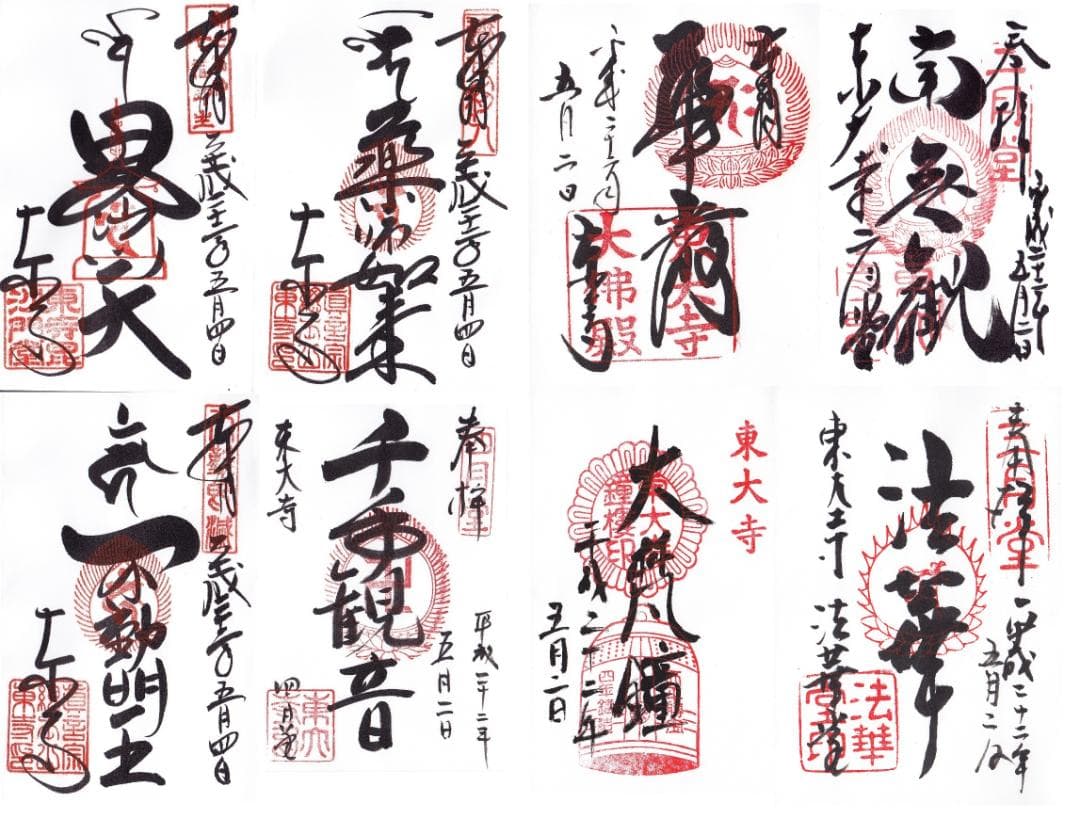 奉拝
平成二十二年五月四日
毘沙門天
奉拝
平成二十二年五月四日
薬師如来
奉拝
華厳
平成二十二年
五月二日
東大寺
東大寺
大佛殿
奉拝
平成二十二年
五月二日
南無観
東大寺二月堂
奉拝
平成二十二年五月四日
不動明王
奉拝
平成二十二年
五月二日
千手観音
東大寺
四月堂
東大寺
大梵鐘
平成二十二年
五月二日
奉拝
平成二十二年
五月二日
法華
東大寺 法華堂
法華堂印